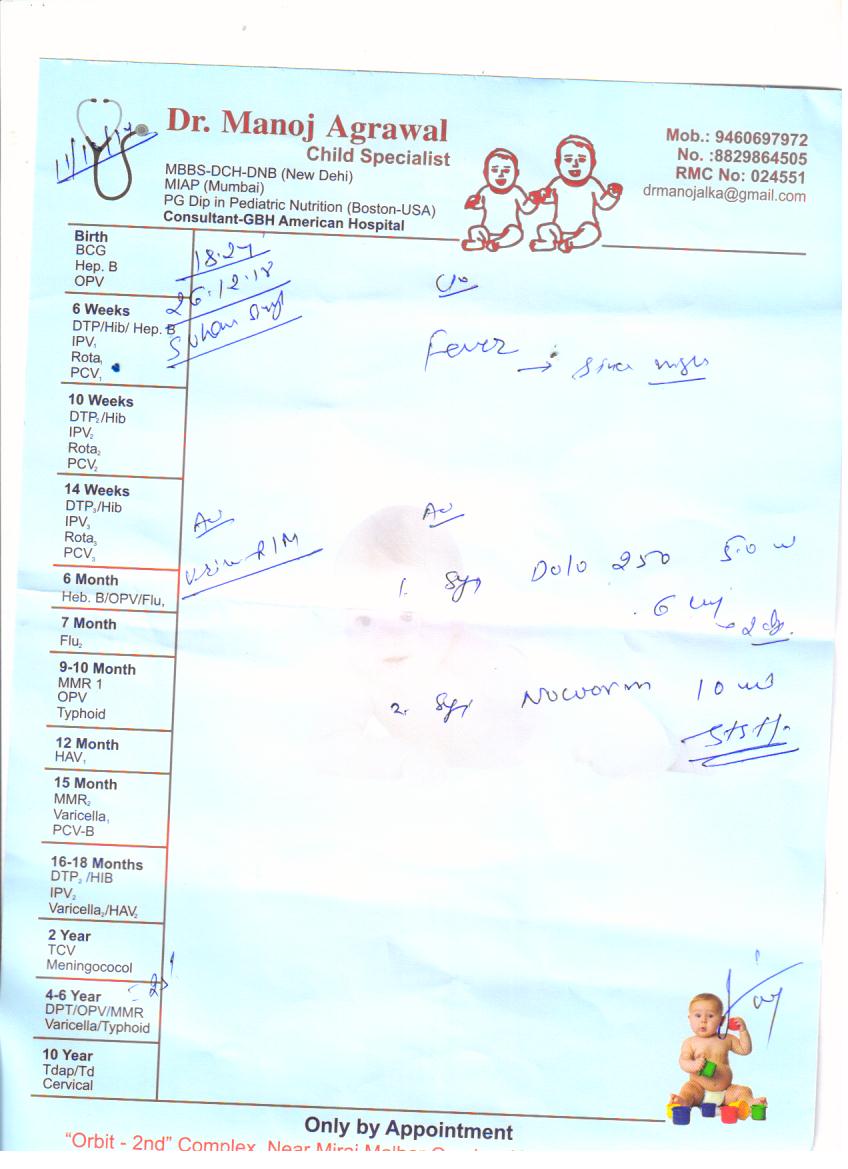 Dr. Manoj Agrawal
Child Specialist
MBBS-DCH-DNB (New Dehi)
MIAP (Mumbai)
PG Dip in Pediatric Nutrition (Boston-USA)
Consultant-GBH American Hospital
Mob.: 9460697972
No. :8829864505
RMC No: 024551
drmanojalka@gmail.com
Birth
BCG
Hep. B
OPV
26.12.18
c/o
6 Weeks
DTP/Hib/ Hep. B
IPV₁
Rota₁
PCV₁
Fever → since
10 Weeks
DTP₂/Hib
IPV₂
Rota₂
PCV₂
14 Weeks
DTP₃/Hib
IPV₃
Rota₃
PCV₃
1. Syp Dolo 250 5.0
6
6 Month
Heb. B/OPV/Flu₁
7 Month
Flu₂
9-10 Month
MMR 1
OPV
Typhoid
2. Syp Noworm 10
12 Month
HAV₁
15 Month
MMR₂
Varicella₁
PCV-B
16-18 Months
DTP₂ /HIB
IPV₂
Varicella₂/HAV₂
2 Year
TCV
Meningococol
4-6 Year
DPT/OPV/MMR
Varicella/Typhoid
10 Year
Tdap/Td
Cervical
Only by Appointment
"Orbit - 2nd" Complex, Near Miraj